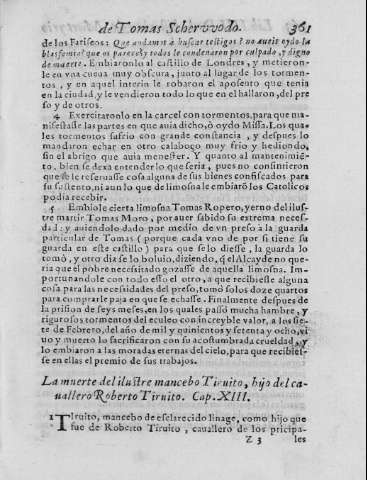 de Tomas Schervvodo. 361
de los Fariseos: Que andamos à buscar testigos? no aueis oydo la
blasfemia? que os parece? y todos le condenaron por culpado, y digno
de muerte. Embiaronlo al castillo de Londres, y metieron-
le en vna cueua muy obscura, junto al lugar de los tormen-
tos, y en aquel interin le robaron el aposento que tenia
en la ciudad, y le vendieron todo lo que en el hallaron, del pre
so y de otros.
4 Exercitaronlo en la carcel con tormentos, para que ma-
nifestasse las partes en que auia dicho, ò oydo Missa. Los qua
les tormentos sufrio con grande constancia, y despues lo
mandaron echar en otro calaboço muy frio y hediondo,
sin el abrigo que auia menester. Y quanto al mantenimiē-
to, bien se dexa entender lo que seria, pues no consintieron
que se le reseruasse cosa alguna de sus bienes confiscados para
su sustento, ni aun lo que de limosna le embiarō los Catolicos
podia recebir.
5 Embiole cierta limosna Tomas Ropero, yerno del ilus-
tre martir Tomas Moro, por auer sabido su estrema neces-
dad: y auiendolo dado por medio de vn preso à la guarda
particular de Tomas (porque cada vno de por si tiene su
guarda en este castillo) para que se lo diesse, la guarda lo
tomò, y otro dia se lo boluio, diziendo, q̃ el Alcayde no que-
ria que el pobre necessitado gozasse de aquella limosna. Im-
portunandole con todo esso el otro, a que recibiesse alguna
cosa para las necessidades del preso, tomò solos doze quartos
para comprarle paja en que se echasse. Finalmente despues de
la prision de seys meses, en los quales passò mucha hambre, y
rigurosos tormentos del eculeo con increyble valor, a los sie-
te de Febrero, del año de mil y quinientos y setenta y ocho, vi
uo y muerto lo sacrificaron con su acostumbrada crueldad, y
lo embiaron a las moradas eternas del cielo, para que recibies-
se en ellas el premio de sus trabajos.
La muerte del ilustre mancebo Tiruito, hijo del ca-
uallero Roberto Tiruito. Cap. XIII.
1 TIruito, mancebo de esclarecido linage, como hijo que
fue de Roberto Tiruito, cauallero de los pricipa-
Z 3 les